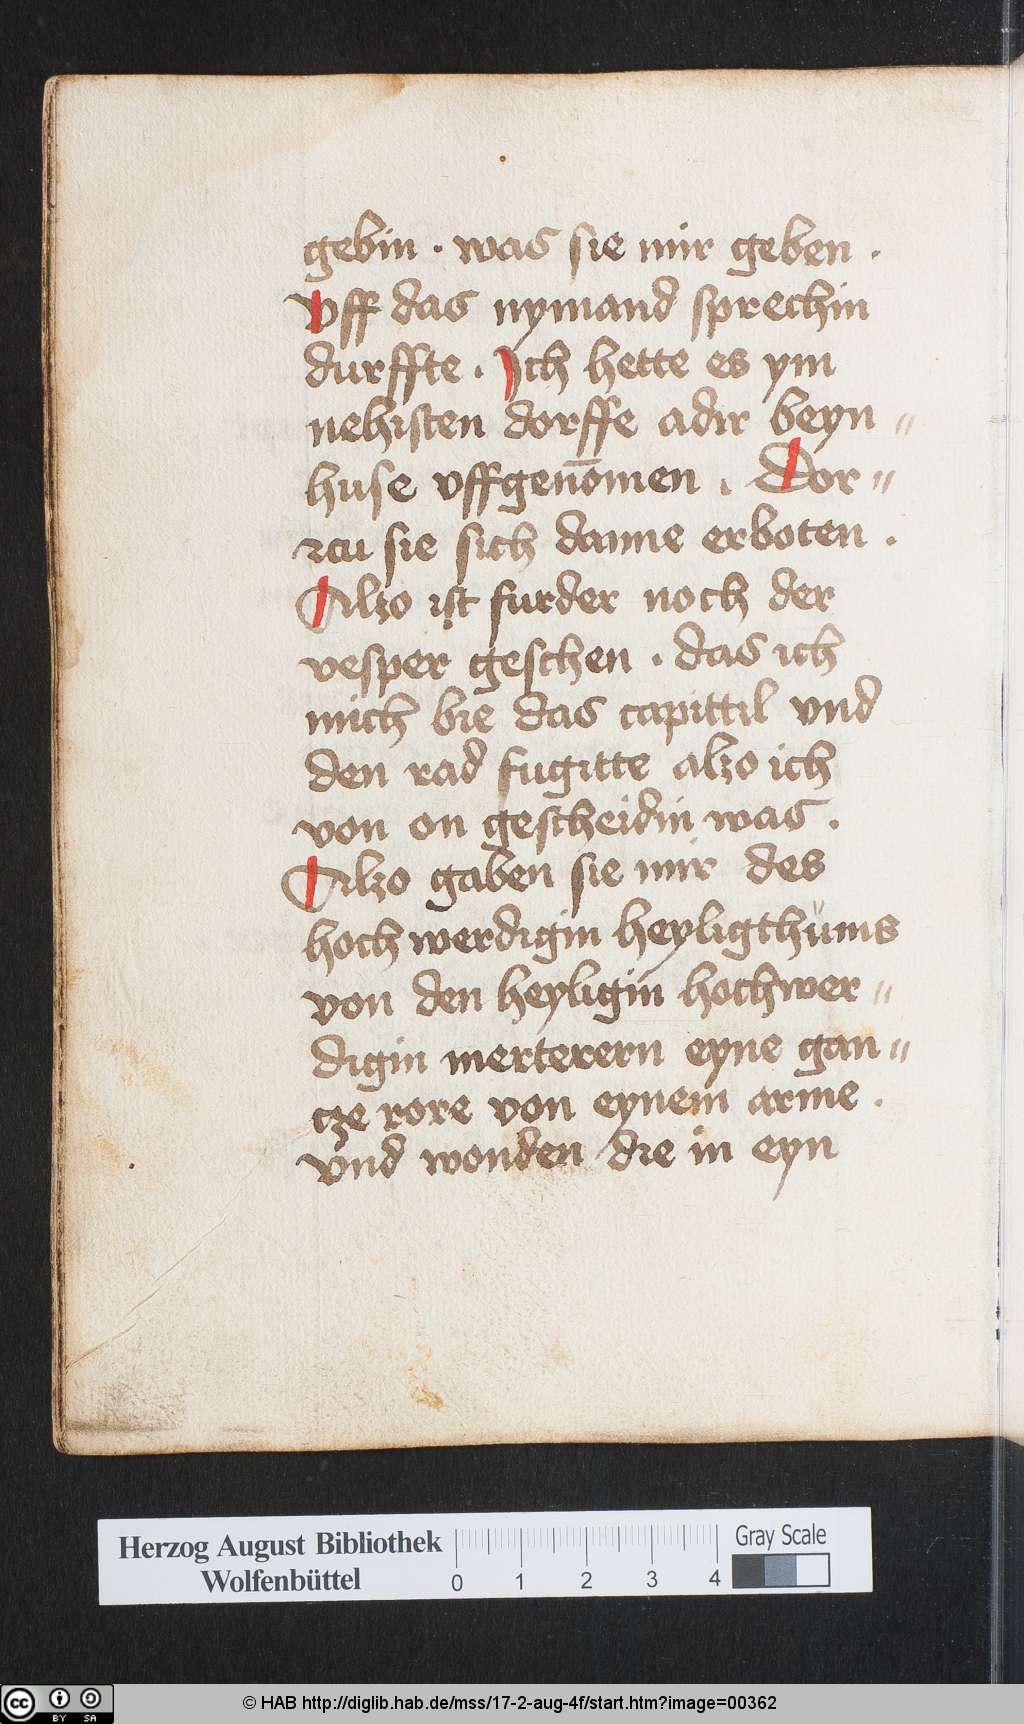 gebin · was sie mir geben ·
vff das nymand sprechin
durffte · Ich hette es ym
nehisten dorffe adir beyn〃
huse vffgenōmen · Dor〃
zcu sie sich danne erboten ·
Alzo ist furder noch der
vesper geschen · das ich
mich bie das capittil vnd
den rad fugitte alzo ich
von on gescheidin was ·
Alzo gaben sie mir des
hochwerdigin heyligthüms
von den heyligin hochwer〃
digin merterern eyne gan〃
cze rore von eynem arme ·
vnd wonden die in eyn
Herzog August Bibliothek
Wolfenbüttel
0 1 2 3 4
Gray Scale
cc BY SA
© HAB http://diglib.hab.de/mss/17-2-aug-4f/start.htm?image=00362